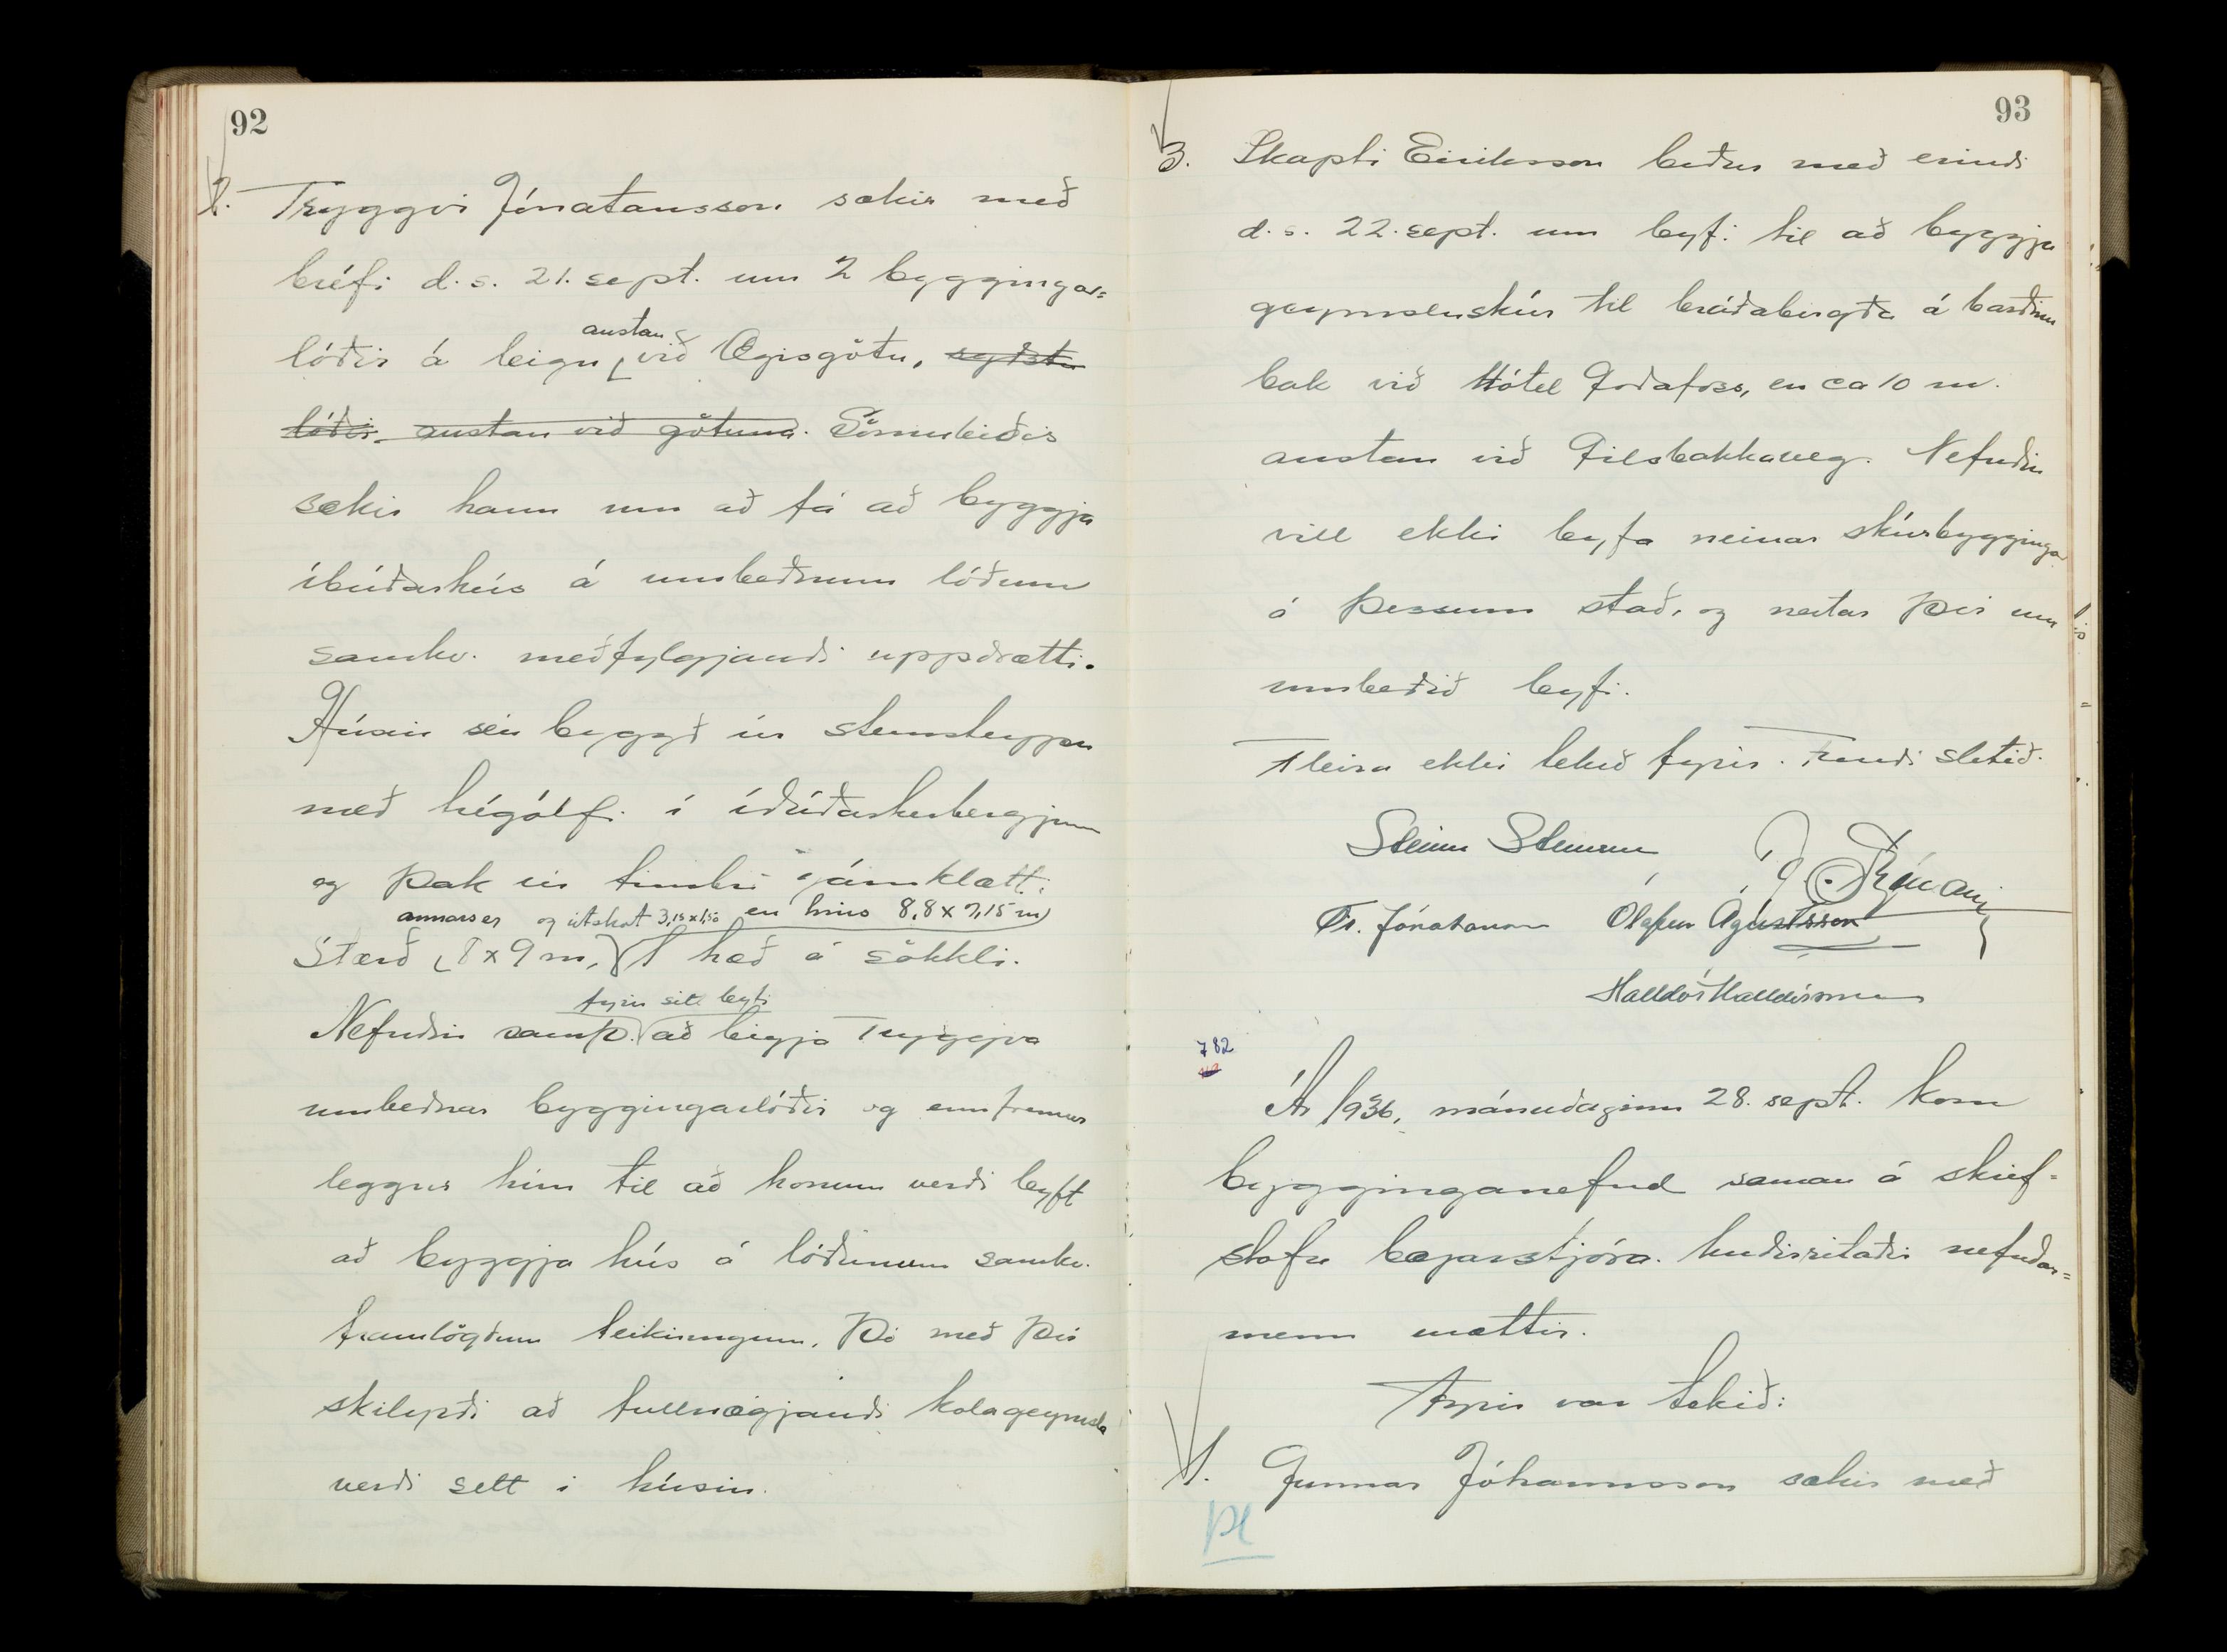 92
2. Tryggvi Jónatansson sækir með
bréfi d.s. 21. sept. um 2 byggingar=
lóðir á leigu austan við Ægisgötu, syðstu
lóðir austan við götuna. Sömuleiðis
sækir hann um að fá að byggja
íbúðarhús á umbeðnum lóðum
samkv. meðfylgjandi uppdrætti.
Húsin séu byggð úr steinsteypu
með trégólfi í íbúðarherbergjum
og þak úr timbri járnklætt.
annars er og útskot 3,15x1,50 en hins 8,8 x 7,15 m
Stærð 8 x 9 m, 1 hæð á sökkli.
fyrir sitt leyti
Nefndin samþ. að leigja Tryggva
umbeðnar byggingarlóðir og ennfremur
leggur hún til að honum verði leyft
að byggja hús á lóðunum samkv.
framlögðum teikningum, þó með því
skilyrði að fullnægjandi kolageymsla
verði sett í húsin.
93
3. Skapti Eiríksson biður með erindi
d.s. 22. sept. um leyfi til að byggja
geymsluskúr til bráðabirgða á barðinu
bak við Hótel Goðafoss, en ca 10 m.
austan við Gilsbakkaveg. Nefndin
vill ekki leyfa neinar skúrbyggingar
á þessum stað, og neitar því um
umbeðið leyfi.
Fleira ekki tekið fyrir. Fundi slitið.
Steinn Steinsen
Tr. Jónatansson Ólafur Ágústsson
Halldór Halldórsson
782
Ár 1936, mánudaginn 28. sept. kom
bygginganefnd saman á skrif-
stofu bæjarstjóra. Undirritaðir nefndar=
menn mættir.
Fyrir var tekið:
1. Gunnar Jóhannsson sækir með